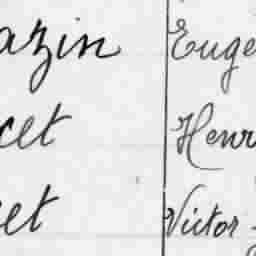 azin Euge
cet Henr
et Victor